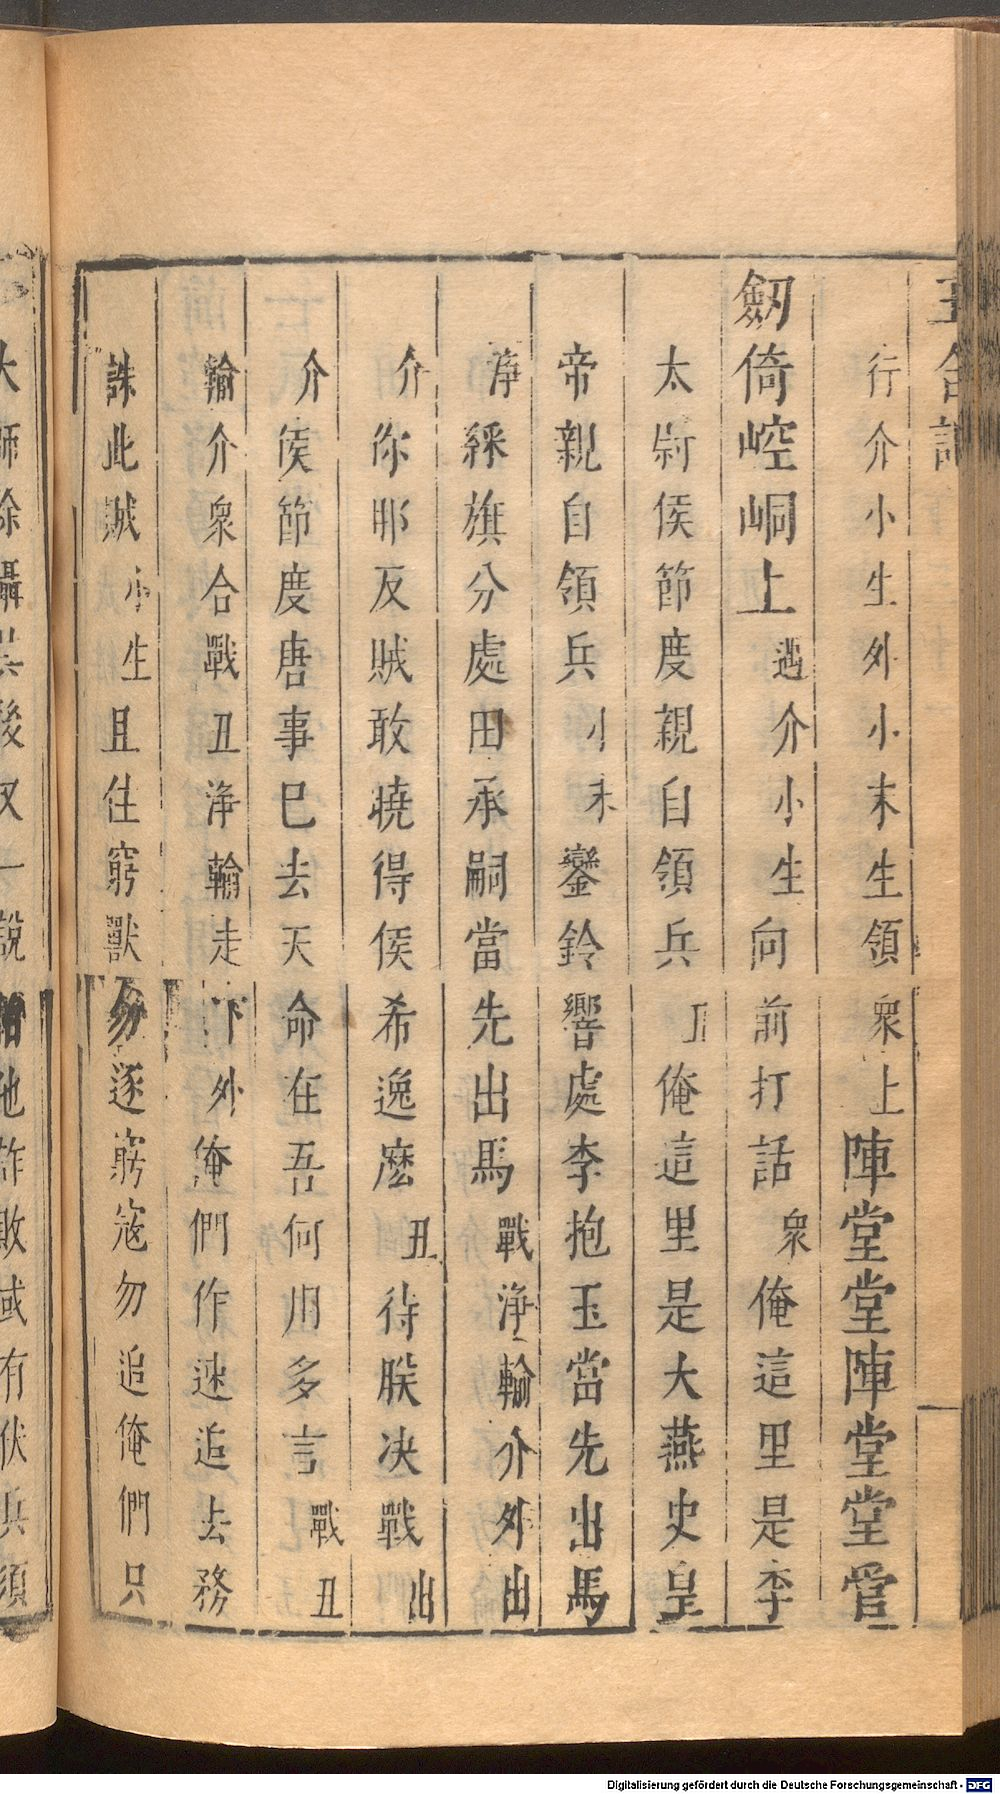 玉合記
行介小生外小末生領衆上陣堂堂陣堂堂官
劒倚崆峒上遇介小生向前打話衆俺這里是李
太尉侯節度親自領兵丑俺這里是大燕史皇
帝親自領兵小末鑾鈴響處李抱玉當先出馬
淨綵旗分處田承嗣當先出馬戰淨輸介外出
介你耶反賊敢撓得侯希逸麽丑待朕决戰出
介侯節度唐事巳去天命在吾何用多言戰丑
輸介衆合戰丑淨輸走下外俺們作速追去務
誅此賊小生且住窮獸勿逐窮寇勿追俺們只
大師餘
後又一說
他詐敗或有伏兵須
Digitalisierung gefördert durch die Deutsche Forschungsgemeinschaft - DFG